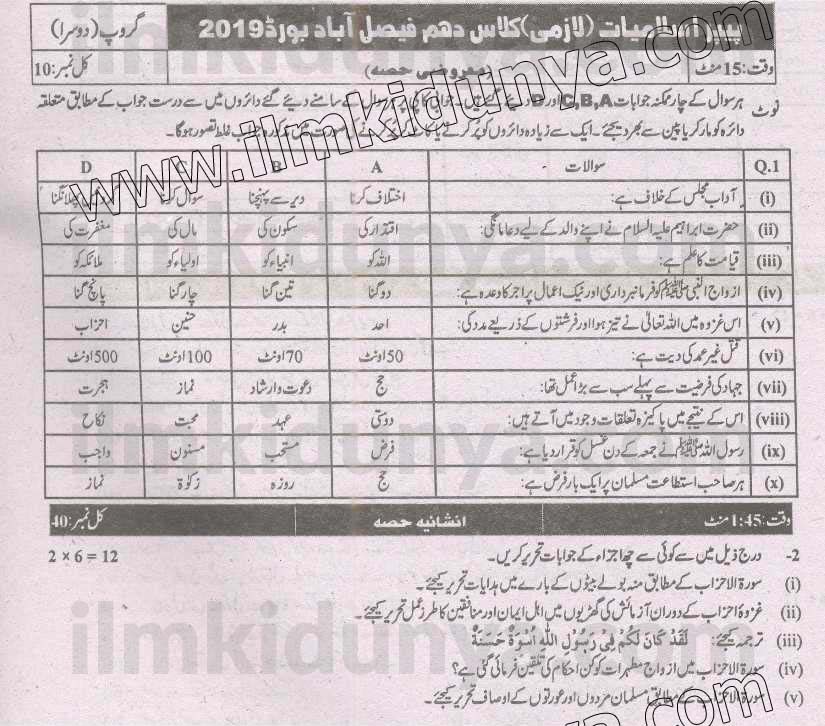 پیپر اسلامیات (لازمی) کلاس دہم فیصل آباد بورڈ 2019 گروپ (دوسرا)
وقت: 15 منٹ (معروضی حصہ) کل نمبر: 10
نوٹ ہر سوال کے چار ممکنہ جوابات C,B,A اور D دیئے گئے ہیں۔ جوابی کاپی پر ہر سوال کے سامنے دیئے گئے دائروں میں سے درست جواب کے مطابق متعلقہ
دائرہ کو مارکر یا پین سے بھر دیجئے۔ ایک سے زیادہ دائروں کو پُر کرنے یا کاٹ کر پُر کرنے کی صورت میں مذکورہ جواب غلط تصور ہوگا۔
Q.1 سوالات A B C D
(i) آداب مجلس کے خلاف ہے: اختلاف کرنا دیر سے پہنچنا سوال کرنا پھلانگنا
(ii) حضرت ابراہیم علیہ السلام نے اپنے والد کے لیے دعا مانگی: اقتدار کی سکون کی مال کی مغفرت کی
(iii) قیامت کا علم ہے: اللہ کو انبیاء کو اولیاء کو ملائکہ کو
(iv) ازواج النبی ﷺ کو فرمانبرداری اور نیک اعمال پر اجر کا وعدہ ہے: دو گنا تین گنا چار گنا پانچ گنا
(v) اس غزوہ میں اللہ تعالیٰ نے تیز ہوا اور فرشتوں کے ذریعے مدد کی: احد بدر حنین احزاب
(vi) قتل غیر عمد کی دیت ہے: 50 اونٹ 70 اونٹ 100 اونٹ 500 اونٹ
(vii) جہاد کی فرضیت سے پہلے سب سے بڑا عمل تھا: حج دعوت و ارشاد نماز ہجرت
(viii) اس کے نتیجے میں پاکیزہ تعلقات وجود میں آتے ہیں: دوستی عہد محبت نکاح
(ix) رسول اللہ ﷺ نے جمعہ کے دن غسل کو قرار دیا ہے: فرض مستحب مسنون واجب
(x) ہر صاحب استطاعت مسلمان پر ایک بار فرض ہے: حج روزہ زکوٰۃ نماز
وقت: 1:45 منٹ انشائیہ حصہ کل نمبر: 40
2- درج ذیل میں سے کوئی سے چھ اجزاء کے جوابات تحریر کریں۔ 2 × 6 = 12
(i) سورۃ الاحزاب کے مطابق منہ بولے بیٹوں کے بارے میں ہدایات تحریر کیجئے۔
(ii) غزوۂ احزاب کے دوران آزمائش کی گھڑیوں میں اہل ایمان اور منافقین کا طرز عمل تحریر کیجئے۔
(iii) ترجمہ کیجئے: لَقَدْ كَانَ لَكُمْ فِىْ رَسُوْلِ اللّٰهِ اُسْوَةٌ حَسَنَةٌ
(iv) سورۃ الاحزاب میں ازواج مطہرات کو کن احکام کی تلقین فرمائی گئی ہے؟
(v) سورۃ الاحزاب کے مطابق مسلمان مردوں اور عورتوں کے اوصاف تحریر کیجئے۔
www.ilmkidunya.com
ilmkidunya.com
ilmkidunya.com
ilmkidunya.com